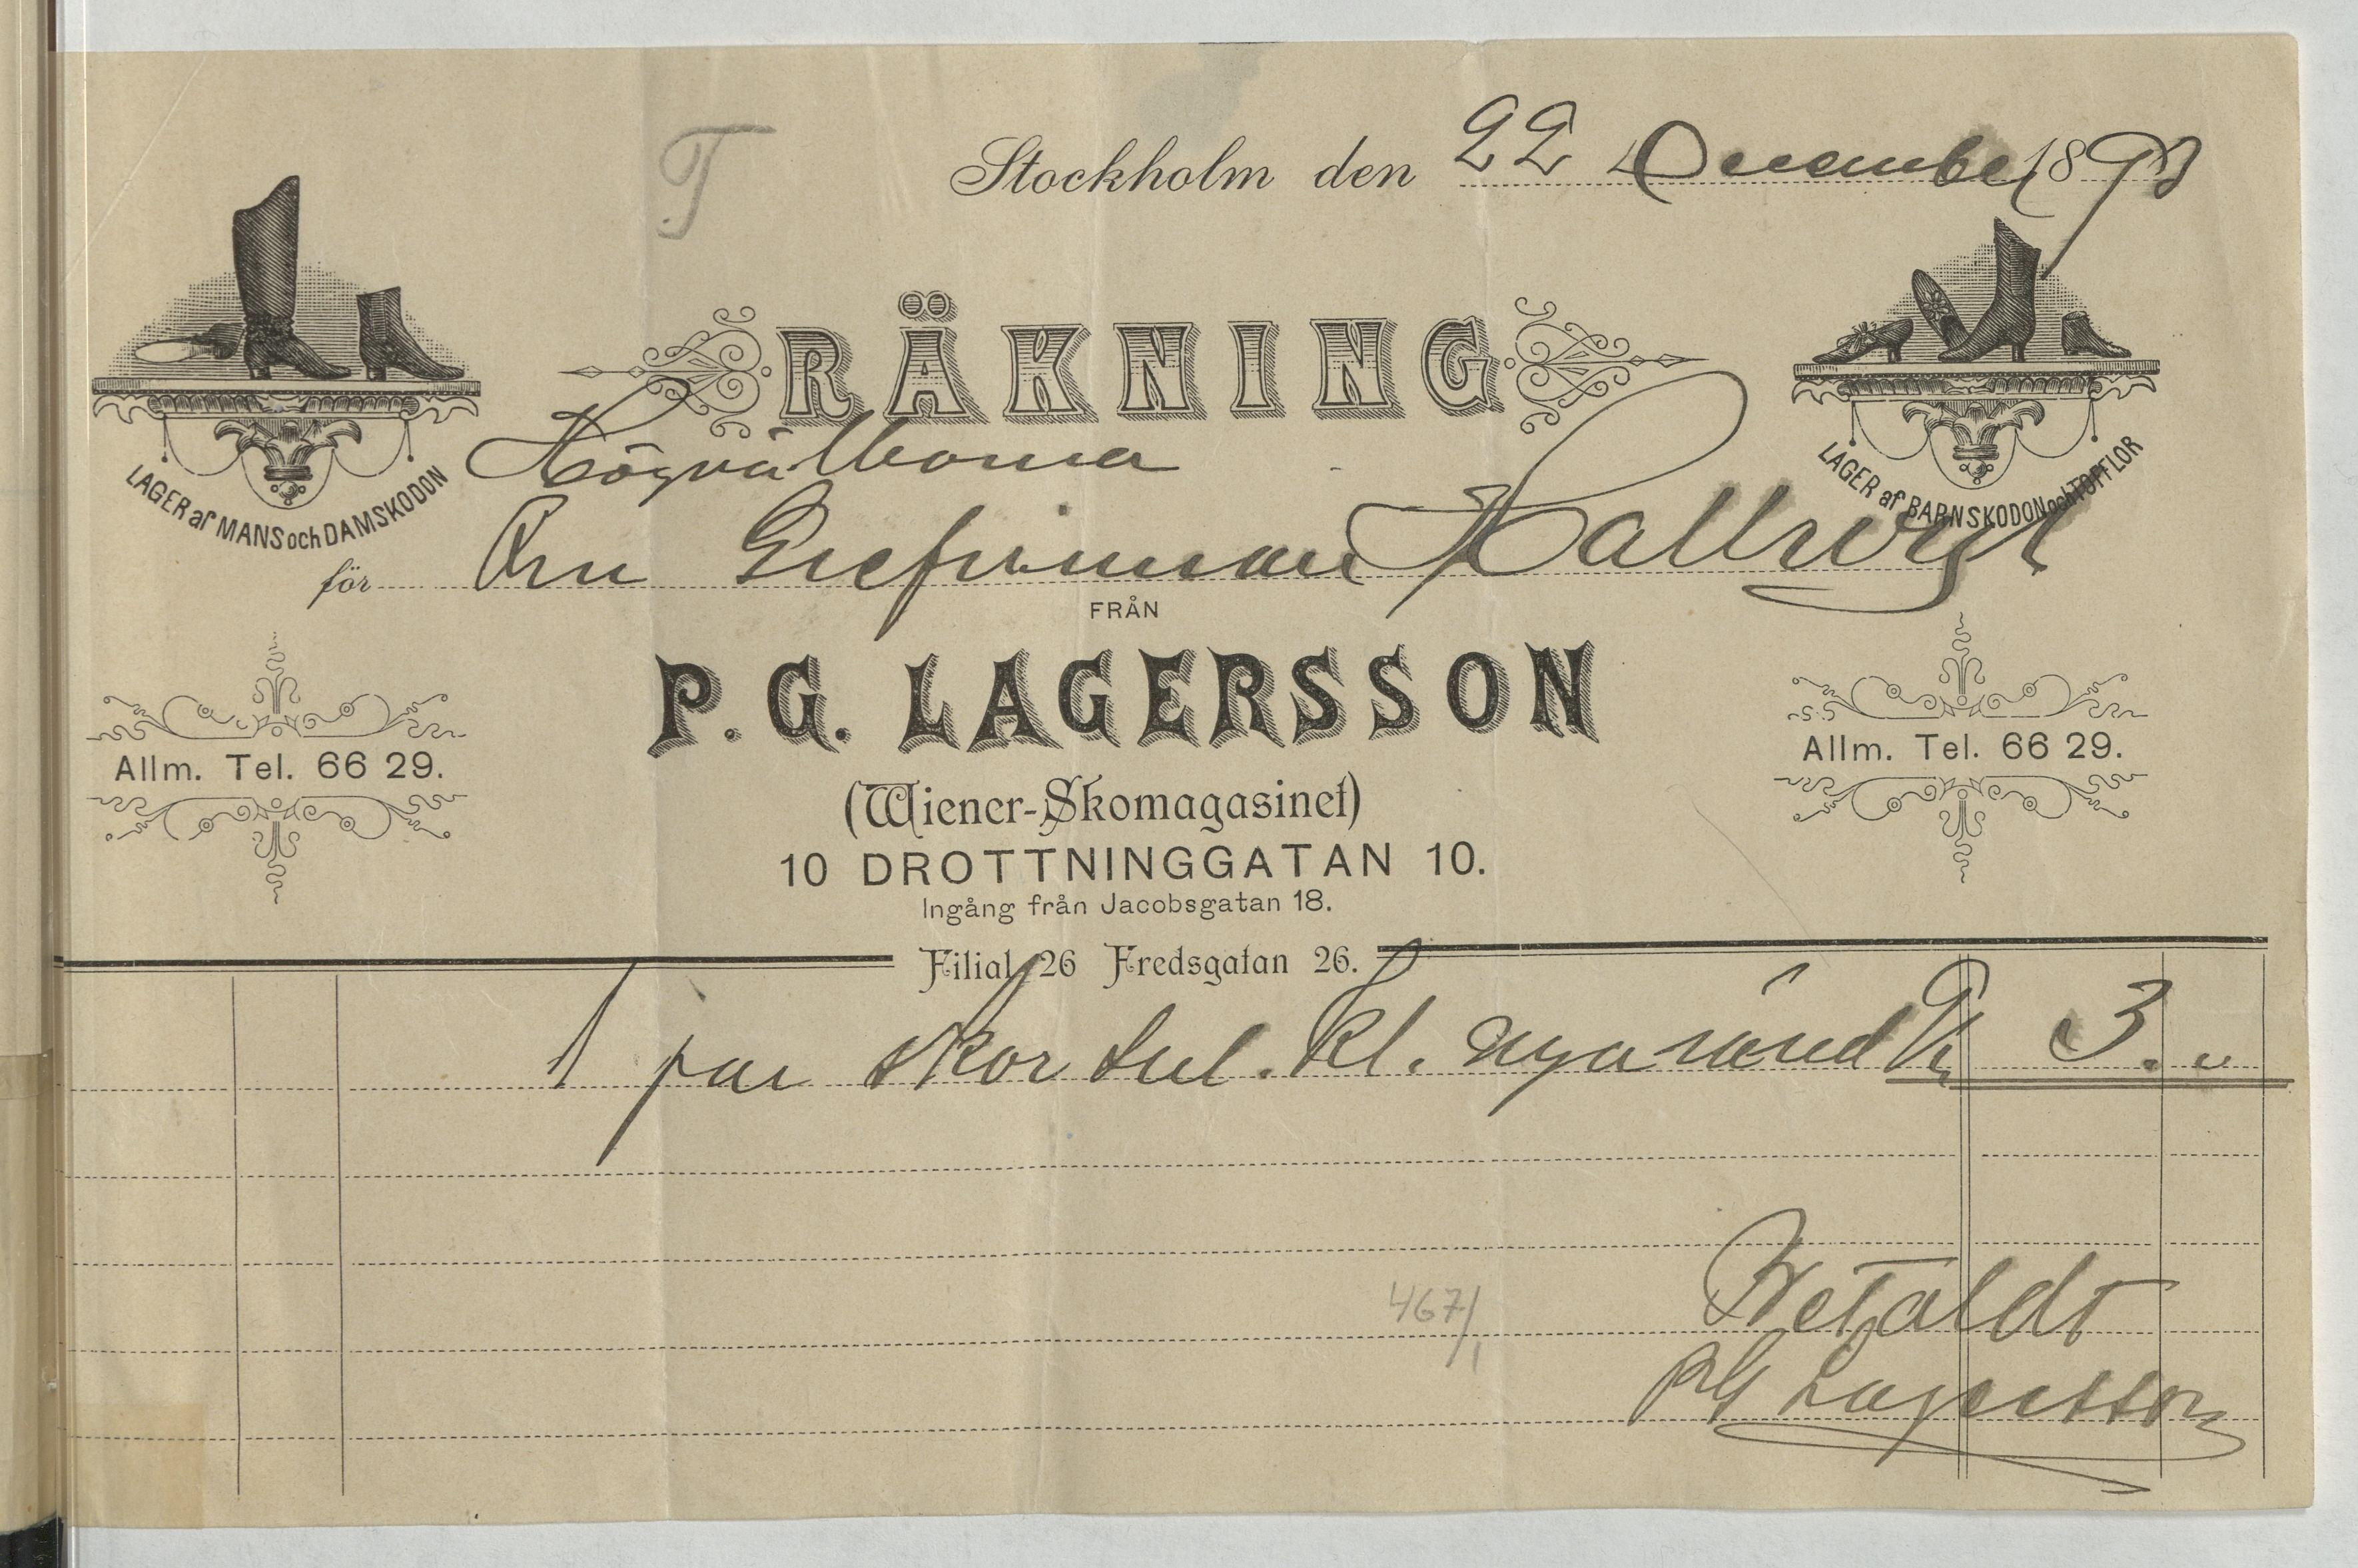 T
Stockholm den 22 December 1893
RÄKNING
LAGER af MANS och DAMSKODON
LAGER af BARNSKODON och TOFFLOR
Högvälborna
för Fru Grefvinnan Hallwyl
FRÅN
P. G. LAGERSSON
Allm. Tel. 66 29.
Allm. Tel. 66 29.
(Wiener-Skomagasinet)
10 DROTTNINGGATAN 10.
Ingång från Jacobsgatan 18.
Filial 26 Fredsgatan 26.
1 par skor sul. kl. nya Kr 3. "
Betaldt
467/1
PG Lagersson